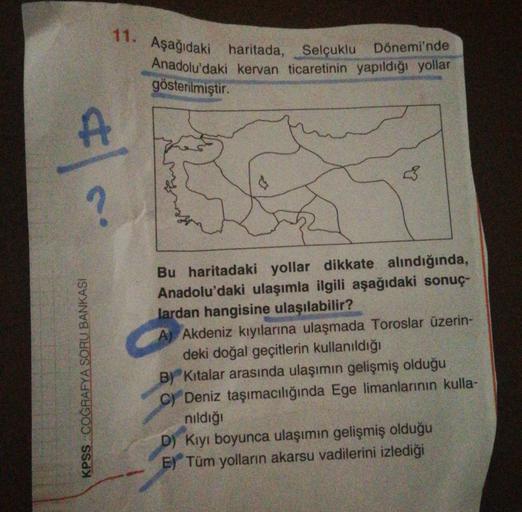 11. Aşağıdaki haritada, Selçuklu Dönemi'nde
Anadolu'daki kervan ticaretinin yapıldığı yollar
gösterilmiştir.
A
?
Bu haritadaki yollar dikkate alındığında,
Anadolu'daki ulaşımla ilgili aşağıdaki sonuç-
lardan hangisine ulaşılabilir?
A) Akdeniz kıyılarına ulaşmada Toroslar üzerin-
deki doğal geçitlerin kullanıldığı
B) Kıtalar arasında ulaşımın gelişmiş olduğu
C) Deniz taşımacılığında Ege limanlarının kulla-
nıldığı
D) Kıyı boyunca ulaşımın gelişmiş olduğu
E) Tüm yolların akarsu vadilerini izlediği
KPSS - COĞRAFYA SORU BANKASI